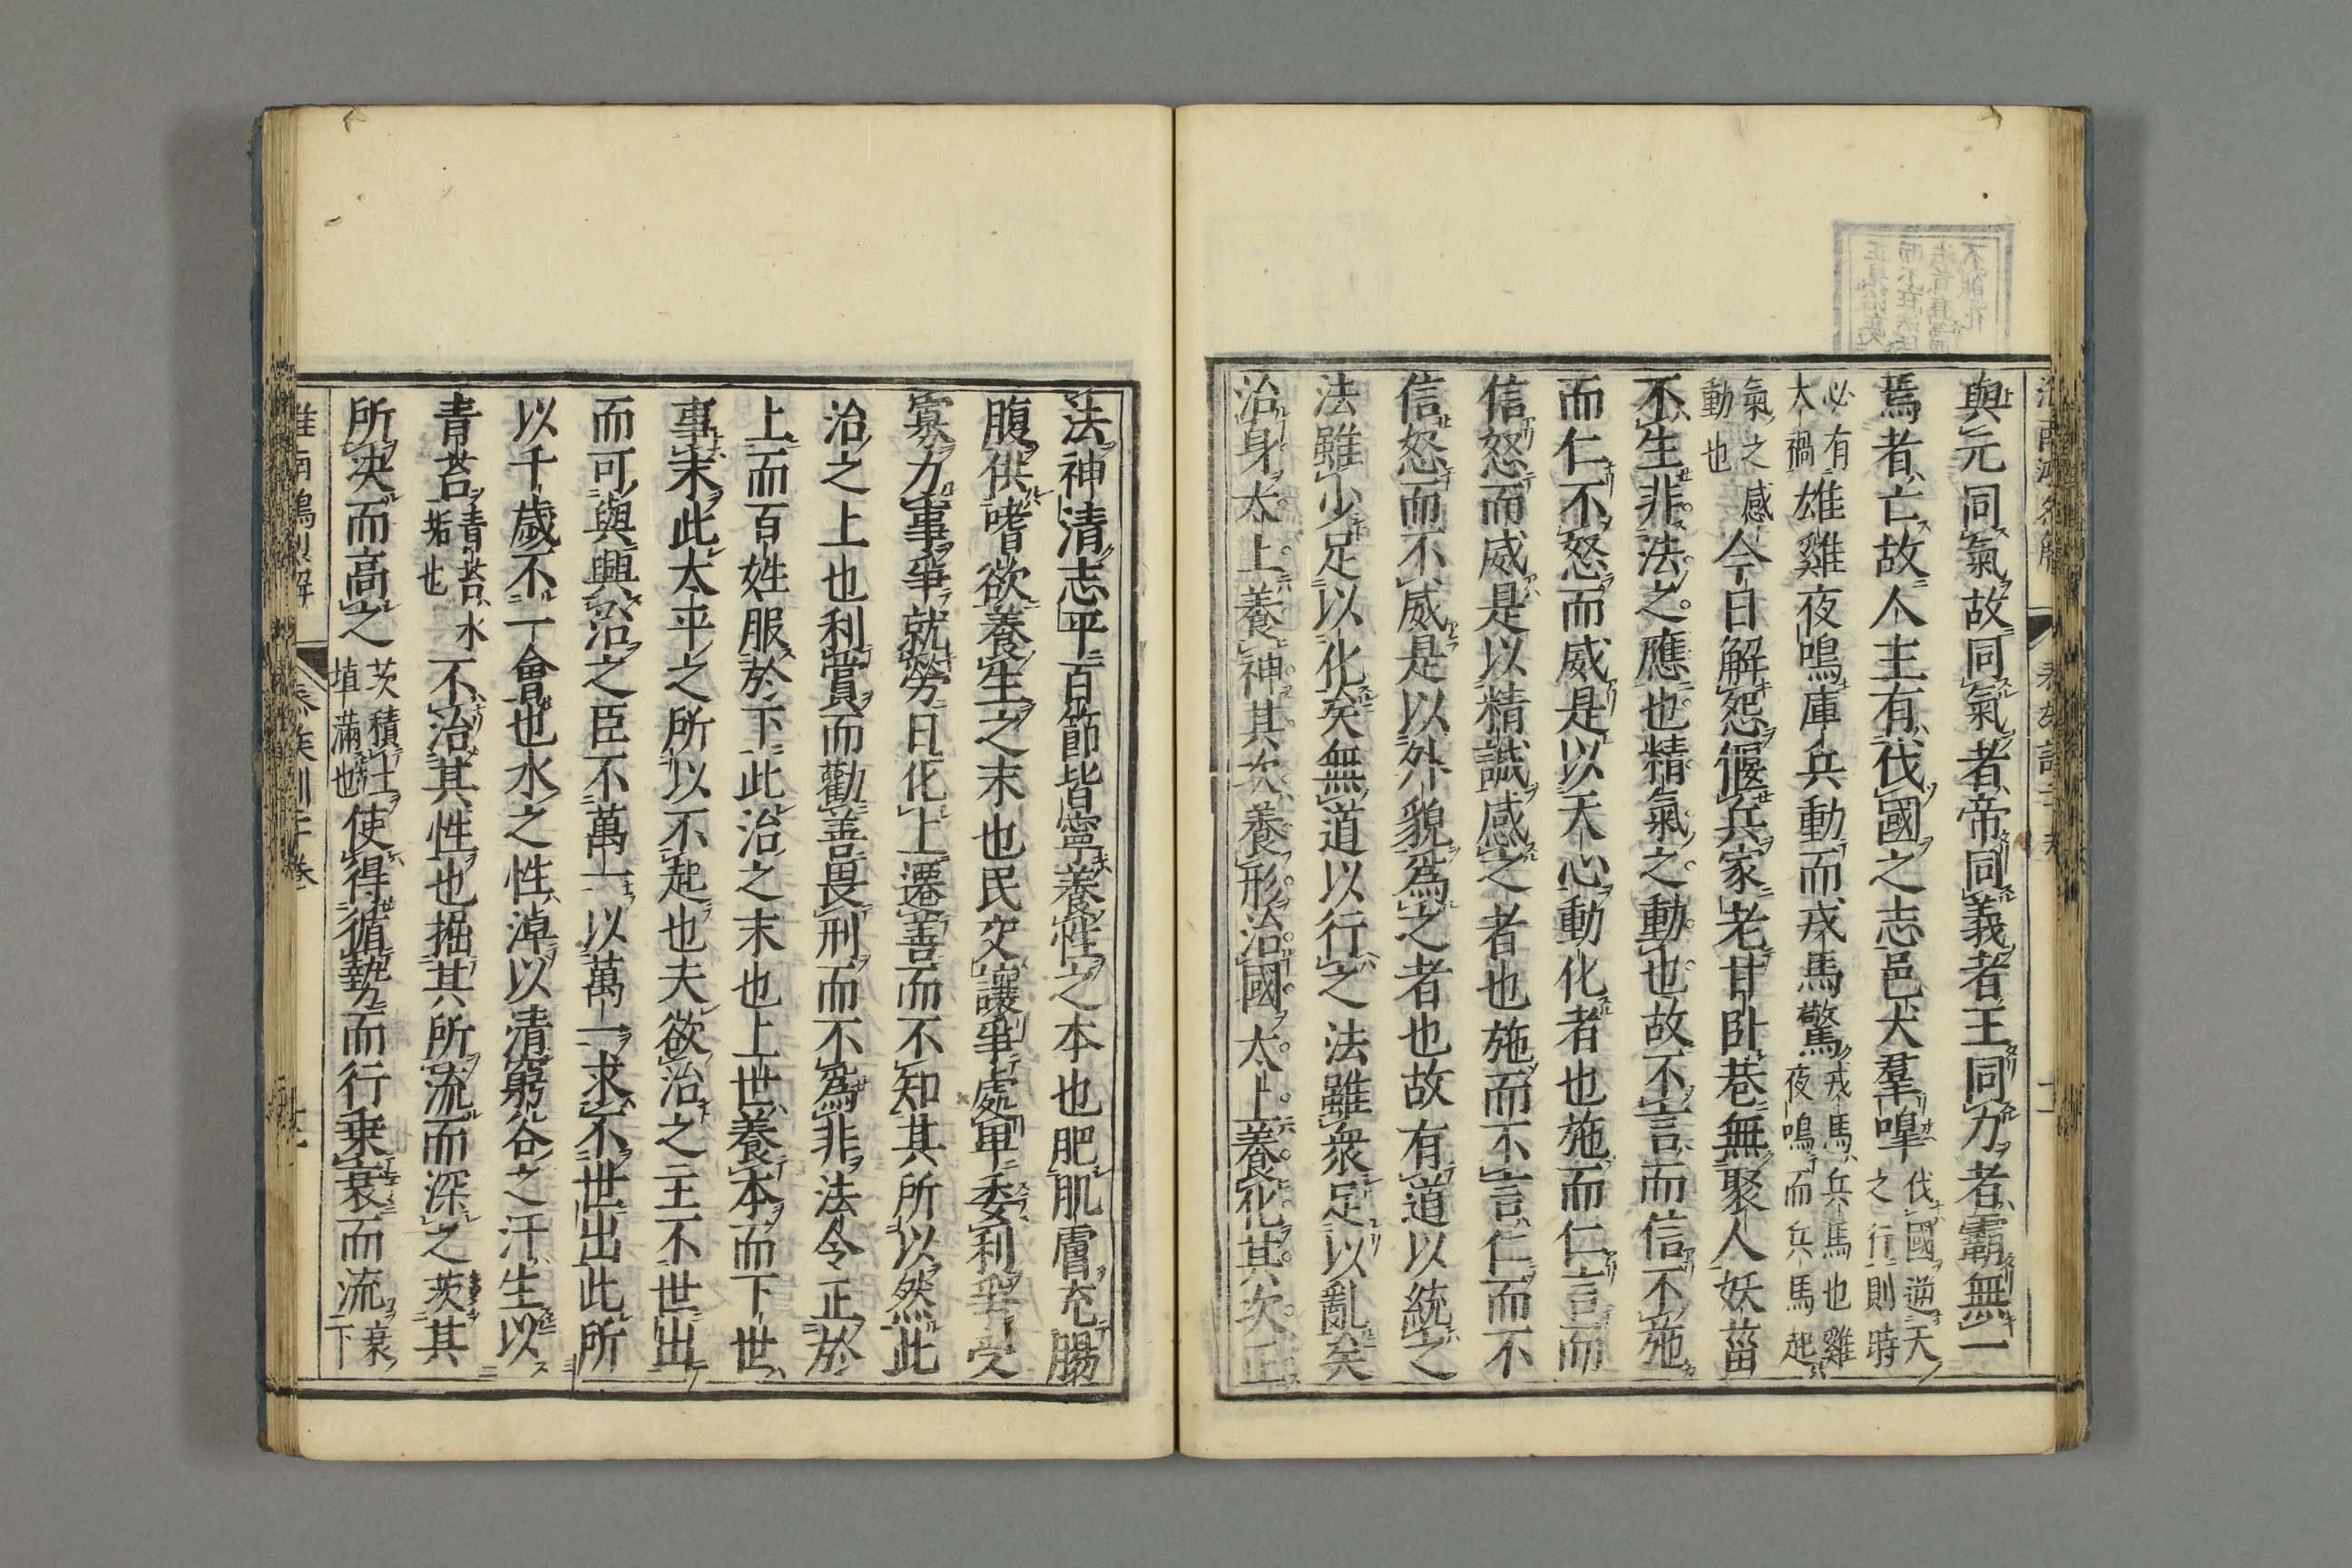 與元同氣故同氣者帝同義者王同力者霸無一
焉者亡故人主有伐國之志邑犬羣嘷伐國逆天之行則時
必有大禍雄雞夜鳴庫兵動而戎馬驚戎馬兵馬也雞夜鳴而兵馬起
氣之感動也今日解怨偃兵家老甘卧巷無聚人妖菑
不生非法之應也精氣之動也故不言而信不施
而仁不怒而威是以天心動化者也施而仁言而
信怒而威是以精誠感之者也施而不言仁而不
信怒而不威是以外貌為之者也故有道以統之
法雖少足以化矣無道以行之法雖衆足以亂矣
治身太上養神其次養形治國太上養化其次正
法神清志平百節皆寧養性之本也肥肌膚充腸
腹供嗜欲養生之末也民交讓爭處卑委利爭受
寡力事爭就勞日化上遷善而不知其所以然此
治之上也利賞而勸善畏刑而不為非法令正於
上而百姓服於下此治之末也上世養本而下世
事末此太平之所以不起也夫欲治之主不世出
而可與興治之臣不萬一以萬一求不世出此所
以千歲不一會也水之性淖以清窮谷之汙生以
青苔青苔水垢也不治其性也掘其所流而深之茨其
所决而高之茨積土填滿也使得循勢而行乗衰而流衰下